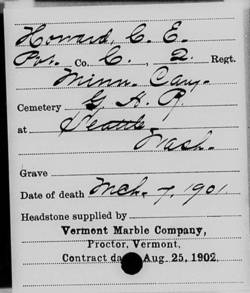 Howard, C. E.
Pvt. Co. C, 2 Regt.
Minn. Cav.
Cemetery G. A. R.
at Seattle,
Wash.
Grave
Date of death Mch. 7, 1901
Headstone supplied by
Vermont Marble Company,
Proctor, Vermont.
Contract da Aug. 25, 1902.